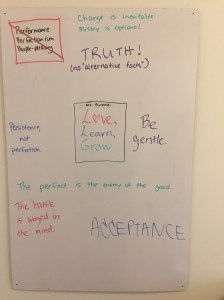 Performance
Perfectionism
People-pleasing
Change is inevitable
misery is optional!
TRUTH!
(no "alternative facts")
Persistence,
not
perfection.
MY PURPOSE:
Love,
Learn,
Grow
Be
gentle.
The perfect is the enemy of the good
The battle
is waged in
the mind.
ACCEPTANCE